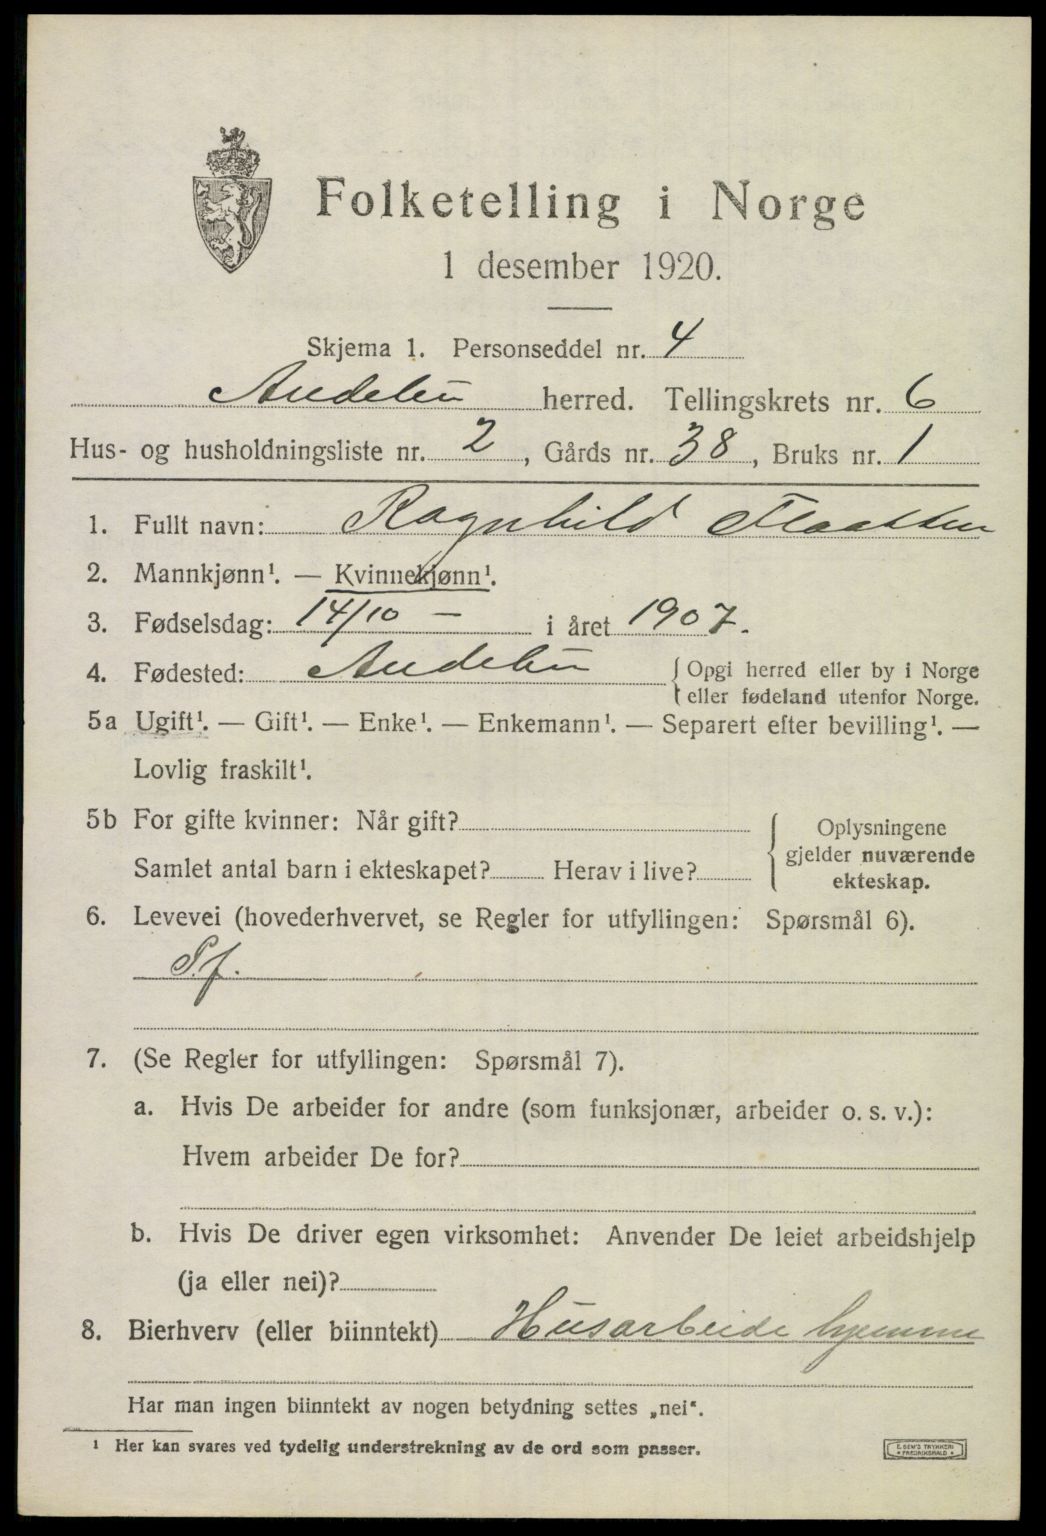 Folketelling i Norge
1 desember 1920.
Skjema 1. Personseddel nr. 4
Andebu herred. Tellingskrets nr. 6
Hus- og husholdningsliste nr. 2, Gårds nr. 38, Bruks nr. 1
1. Fullt navn: Ragnhild Flaatten
2. Mannkjønn¹. — Kvinnekjønn¹.
3. Fødselsdag: 14/10 — i året 1907.
4. Fødested: Andebu { Opgi herred eller by i Norge
eller fødeland utenfor Norge.
5a Ugift¹. — Gift¹. — Enke¹. — Enkemann¹. — Separert efter bevilling¹. —
Lovlig fraskilt¹.
5b For gifte kvinner: Når gift?
Samlet antal barn i ekteskapet? Herav i live?
{ Oplysningene
gjelder nuværende
ekteskap.
6. Levevei (hovederhvervet, se Regler for utfyllingen: Spørsmål 6).
S.f.
7. (Se Regler for utfyllingen: Spørsmål 7).
a. Hvis De arbeider for andre (som funksjonær, arbeider o. s. v.):
Hvem arbeider De for?
b. Hvis De driver egen virksomhet: Anvender De leiet arbeidshjelp
(ja eller nei)?
8. Bierhverv (eller biinntekt) Husarbeide hjemme
Har man ingen biinntekt av nogen betydning settes „nei“.
¹ Her kan svares ved tydelig understrekning av de ord som passer.
E. SEM'S TRYKKERI
FREDRIKSHALD